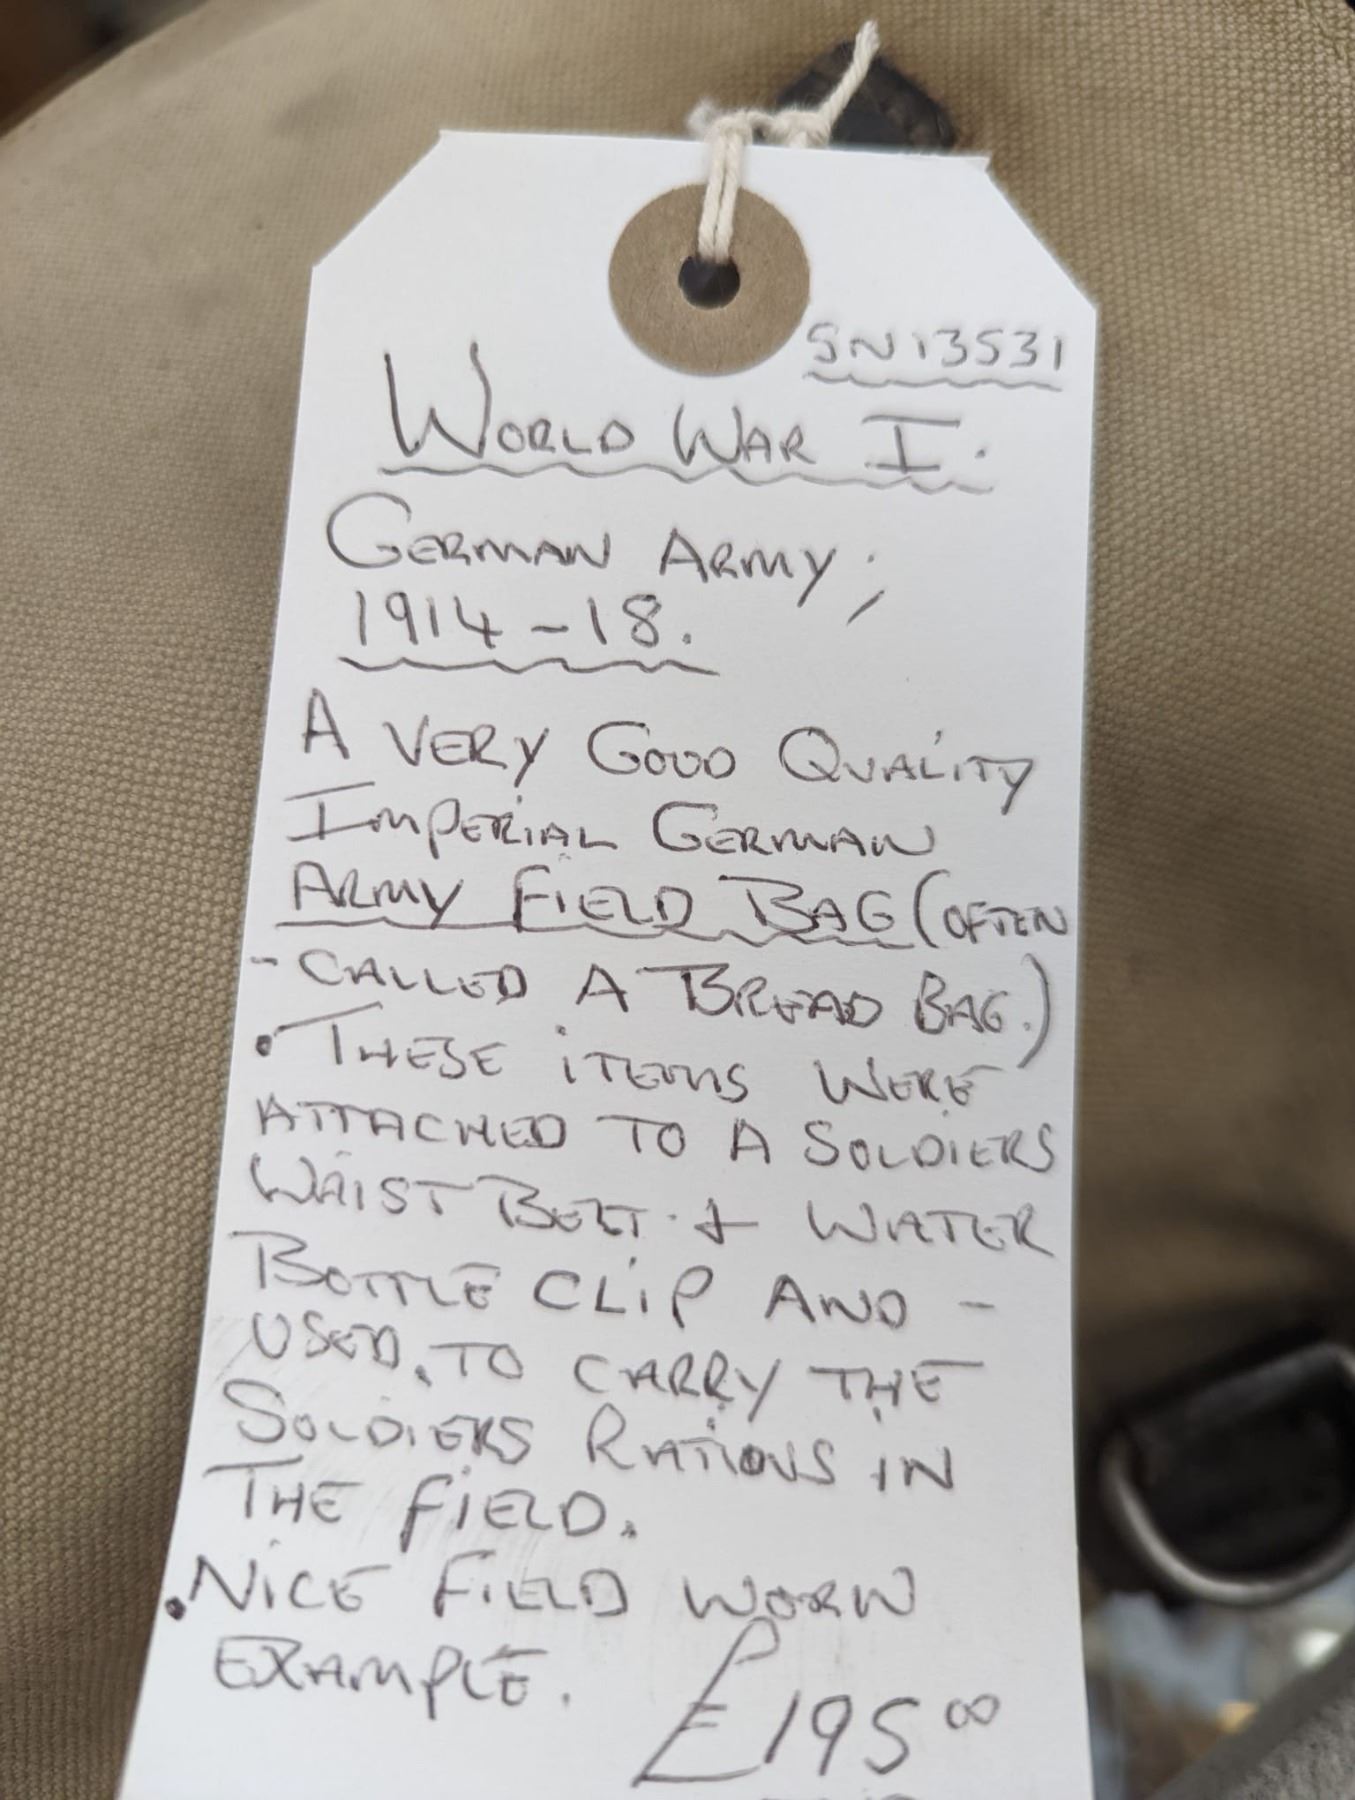 SN13531
WORLD WAR I.
GERMAN ARMY;
1914-18.
A VERY GOOD QUALITY
IMPERIAL GERMAN
ARMY FIELD BAG (OFTEN
- CALLED A BREAD BAG.)
• THESE ITEMS WERE
ATTACHED TO A SOLDIERS
WAIST BELT. & WATER
BOTTLE CLIP AND -
USED. TO CARRY THE
SOLDIERS RATIONS IN
THE FIELD.
• NICE FIELD WORN
EXAMPLE.
£195⁰⁰